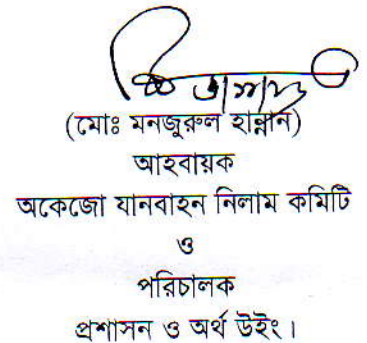 (মোঃ মনজুরুল হান্নান)
আহবায়ক
অকেজো যানবাহন নিলাম কমিটি
ও
পরিচালক
প্রশাসন ও অর্থ উইং।